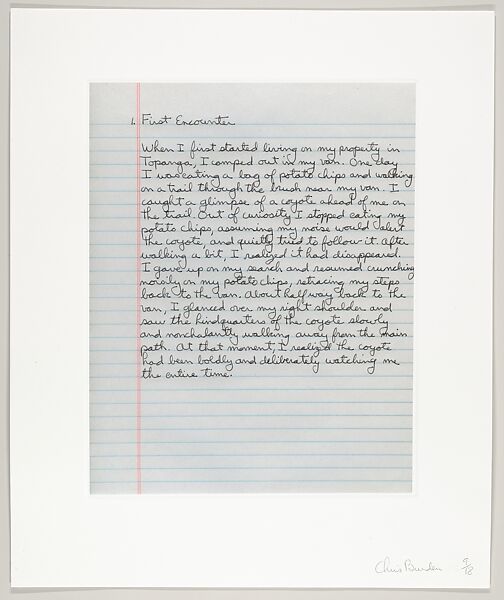 1. First Encounter
When I first started living on my property in
Topanga, I camped out in my van. One day
I was eating a bag of potato chips and walking
on a trail through the brush near my van. I
caught a glimpse of a coyote ahead of me on
the trail. Out of curiosity I stopped eating my
potato chips, assuming my noise would alert
the coyote, and quietly tried to follow it. After
walking a bit, I realized it had disappeared.
I gave up on my search and resumed crunching
noisily on my potato chips, retracing my steps
back to the van. About halfway back to the
van, I glanced over my right shoulder and
saw the hindquarters of the coyote slowly
and nonchalantly walking away from the main
path. At that moment, I realized the coyote
had been boldly and deliberately watching me
the entire time.
Chris Burden 9/18